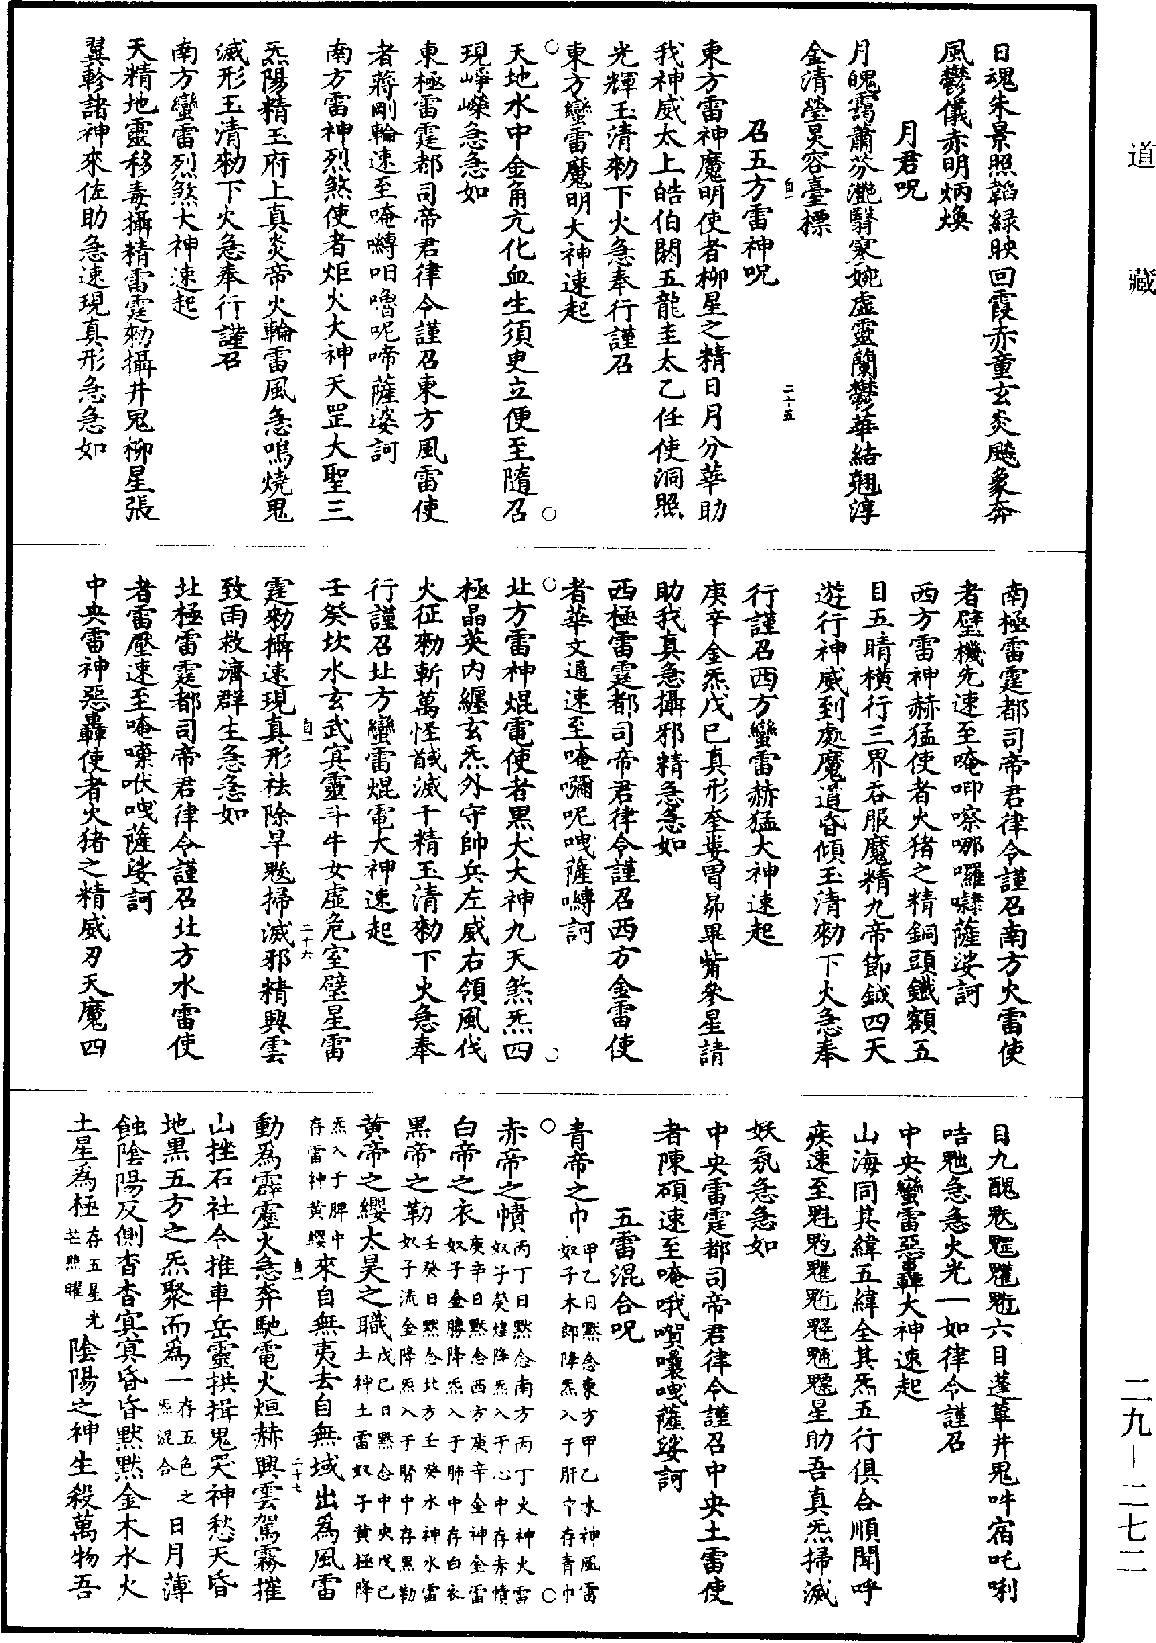 道藏
日魂朱景照韜緑映回霞赤童玄炎飈象奔
風鬱儀赤明炳煥
月君呪
月魄䓗蕭芬灔翳寥婉虛靈蘭鬱華結翹淳
金清瑩炅容臺標
召五方雷神呪
東方雷神魔明使者柳星之精日月分華助
我神威太上皓伯閼五龍圭太乙任使洞照
光輝玉清勑下火急奉行謹召
東方蠻雷魔明大神速起
天地水中金角亢化血生須吏立便至隨召
現崢嶸急急如
東極雷霆都司帝君律令謹召東方風雷使
者蔣剛輪速至唵嚩呬嚕呢啼薩娑訶
南方雷神烈煞使者炬火大神天罡大聖三
炁陽精玉府上真炎帝火輪雷風急嗚燒鬼
滅形玉清勑下火急奉行謹召
南方蠻雷烈煞大神速起
天精地靈移毒攝精雷霆勑攝井鬼柳星張
翼軫諸神來佐助急速現真形急急如
南極雷霆都司帝君律令謹召南方火雷使
者璧機先速至唵唧嚓哪囉㘑薩娑訶
西方雷神赫猛使者火猪之精銅頭鐵額五
目五睛横行三界吞服魔精九帝節鉞四天
遊行神威到處魔道昏傾玉清勑下火急奉
行謹召西方蠻雷赫猛大神速起
庚辛金炁戊巳真形奎婁胃昴畢觜參星請
助我真急攝邪精急急如
西極雷霆都司帝君律令謹召西方金雷使
者華文通速至唵嚩呢嘇薩嚩訶
北方雷神焜電使者黑犬大神九天煞炁四
極晶英内纒玄炁外守帥兵左威右領風伐
火征勑斬萬怪馘滅千精玉清勑下火急奉
行謹召北方蠻雷焜電大神速起
壬癸坎水玄武㝠靈斗牛女虛危室壁星雷
霆勑攝速現真形祛除旱魃掃滅邪精興雲
致雨救濟群生急急如
北極雷霆都司帝君律令謹召北方水雷使
者雷壓速至唵㗘吠㗚薩娑訶
中央雷神惡轟使者火猪之精威刃天魔四
目九醜魁魓䰢䰡六目蓬草井鬼吽宿吒唎
咭魓急急火光一如律令謹召
中央蠻雷惡轟大神速起
山海同其緯五緯全其炁五行俱合順聞呼
疾速至魁䰢䰡䰣䰤䰥䰦星助吾真炁掃滅
妖氛急急如
中央雷霆都司帝君律令謹召中央土雷使
者陳碩速至唵哦嚫嚷㗚薩娑訶
五雷混合呪
青帝之巾甲乙日黙念東方甲乙木神風雷奴子木郎降炁入于肝中存青巾
赤帝之幘丙丁日黙念南方丙丁火神火雷奴子熒煌降炁入于心中存赤幘
白帝之衣庚辛日黙念西方庚辛金神金雷奴子金勝降炁入于肺中存白衣
黑帝之勒壬癸日黙念北方壬癸水神水雷奴子流金降炁入于腎中存黑勒
黄帝之纓太昊之職戊巳日黙念中央戊巳土神土雷奴子黄極降
炁入于脾中存雷神黄纓來自無夷去自無域出為風雷
動為霹靂火急奔馳電火烜赫興雲駕霧摧
山挫石社令推車岳靈拱揖鬼哭神愁天昏
地黑五方之炁聚而為一存五色之炁混合日月薄
蝕陰陽反側杳杳㝠㝠昏昏黙黙金木水火
土星為極存五星光芒照曜陰陽之神生殺萬物吾
自一
二十五
自一
二十六
自一
二十七
二九—二七二